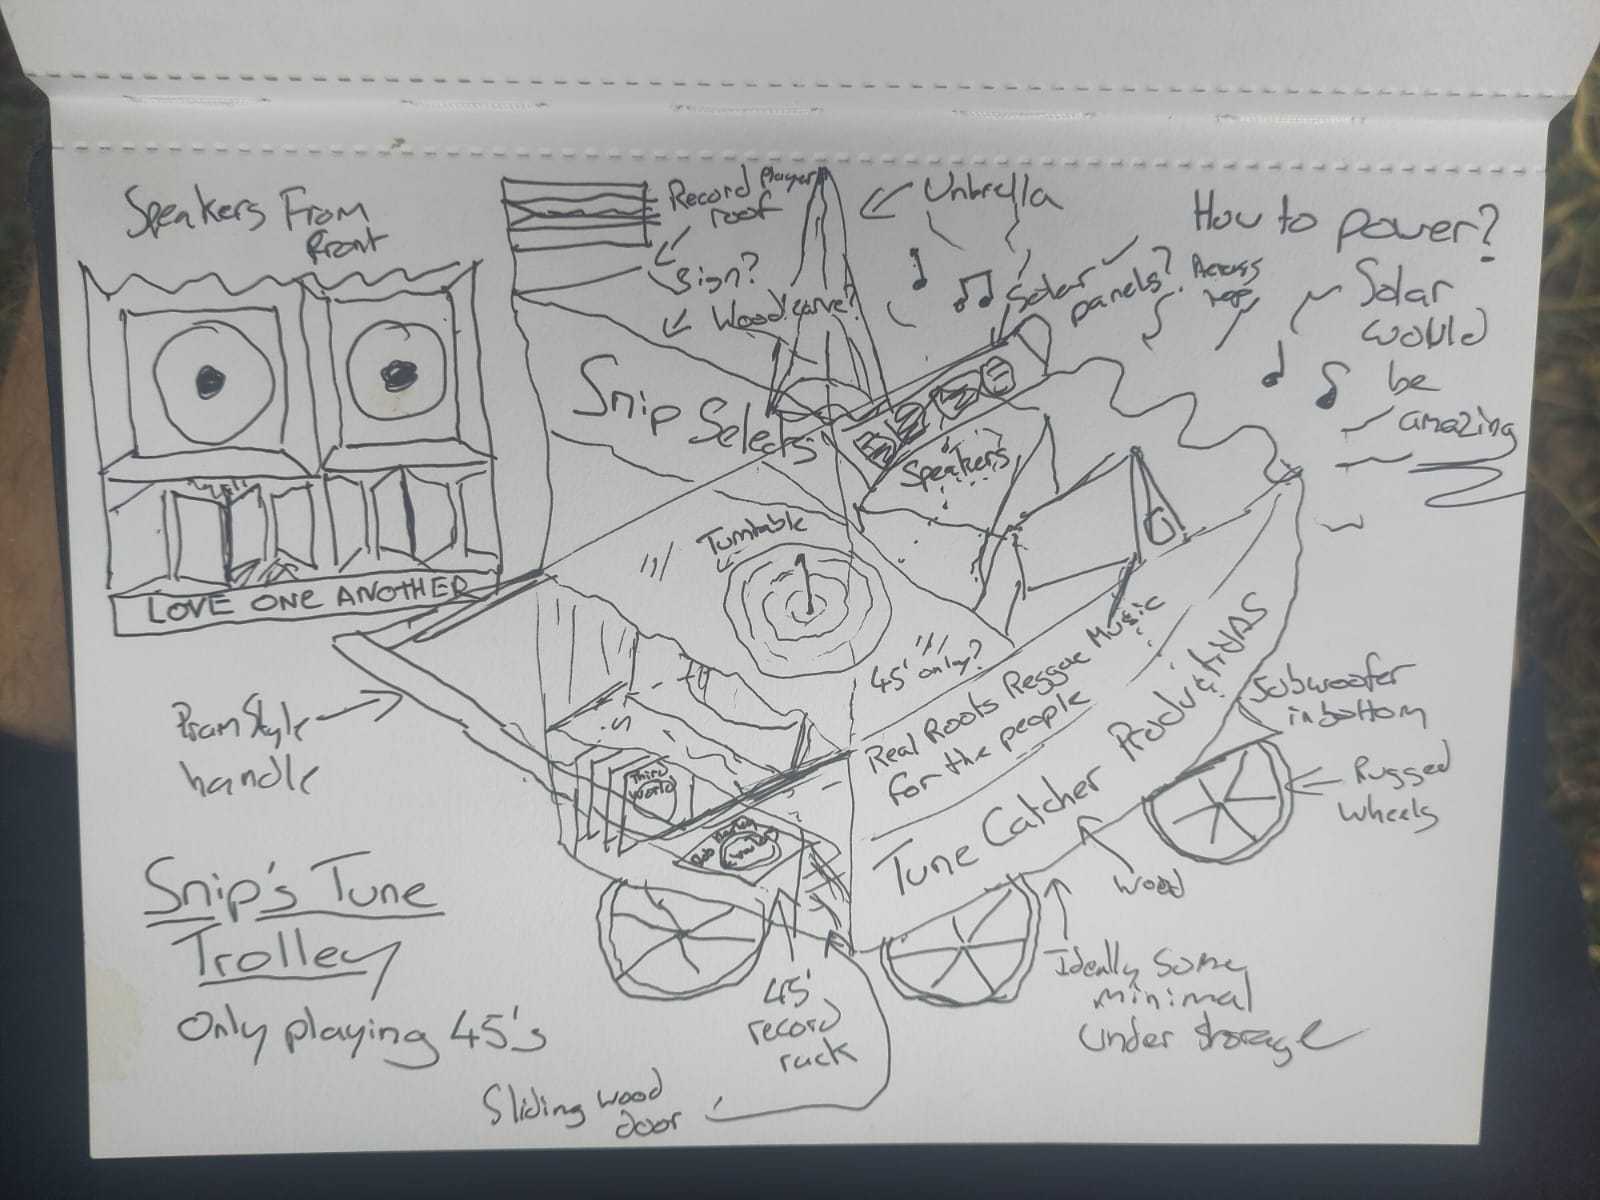 Speakers From
Front
LOVE ONE ANOTHER
Record Player
roof
Sign?
Wood carve?
Unbrella
Solar
panels?
Across
How to power?
Solar
would
be
amazing
Snip Selects
Speakers
Turntable
45' only?
Real Roots Reggae Music
for the people
Tune Catcher Productions
Subwoofer
in bottom
Rugged
wheels
Wood
Ideally Some
minimal
under storage
Pram Style
handle
Third
World
Bob Marley
Snip's Tune
Trolley
Only playing 45's
45'
record
rack
Sliding wood
door